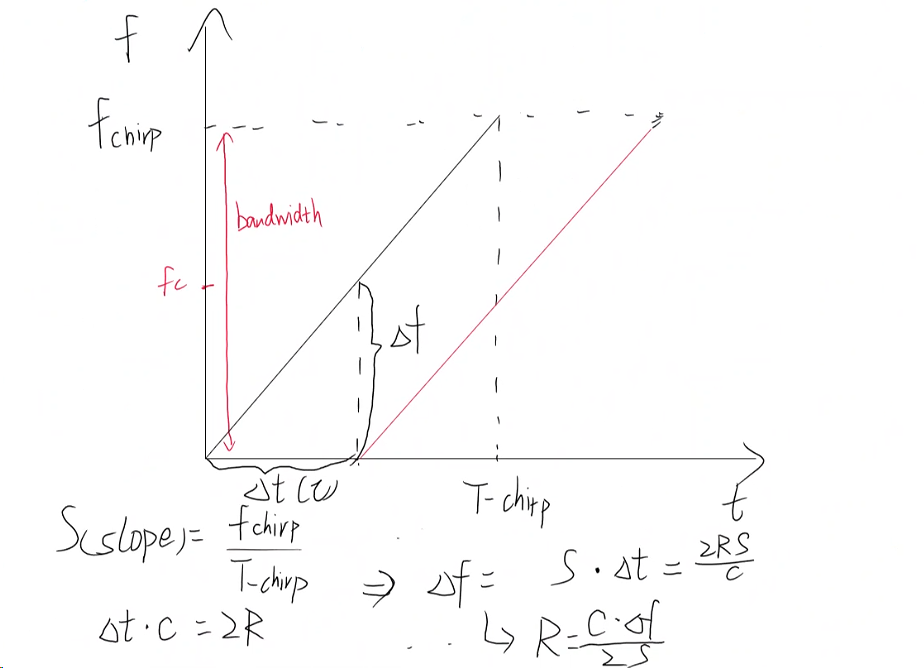 f
fchirp
bandwidth
fc
Δf
Δt (τ)
T-chirp
t
S(slope) = fchirp / T-chirp
⇒ Δf = S · Δt = 2RS / C
Δt · C = 2R
↳ R = C · Δf / 2S